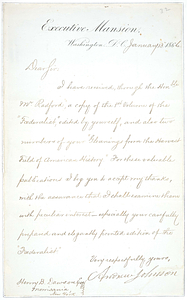 Executive Mansion,
Washington, D.C. January 13 186
Dear Sir
I have received, through the Hon
Wm. Radford, a copy of the 1st Volume of the
"Federalist," edited by yourself, and also two
numbers of your "Gleanings from the Harvest
Field of American History." For these valuable
publications I beg you to accept my thanks,
with the assurance that I shall examine them
with peculiar interest especially your carefully
prepared and elegantly printed edition of the
"Federalist."
Very respectfully, yours,
Andrew Johnson
Henry B. Dawson, Esq.
Morrisania,
New York